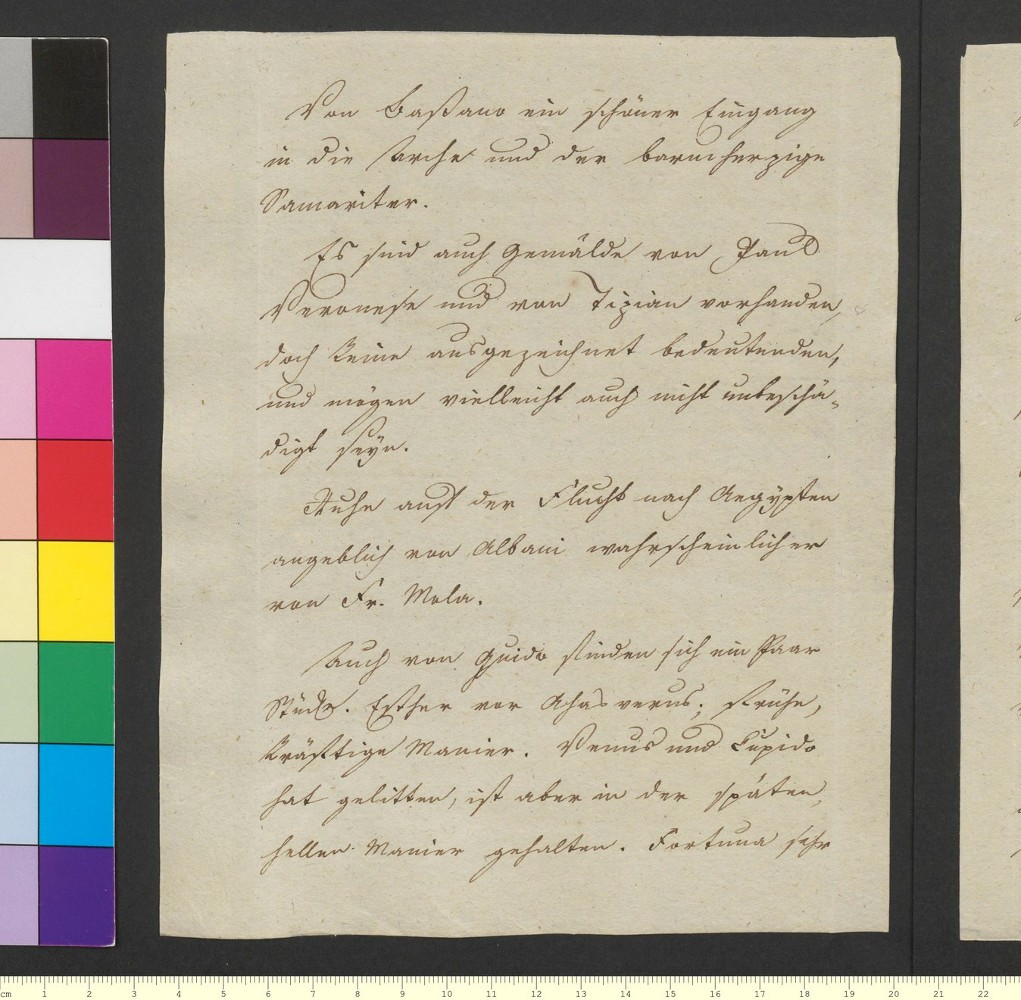 Von Baßano ein schöner Eingang
in die Arche und der barmherzige
Samariter.
Es sind auch Gemälde von Paul
Veronese und von Tizian vorhanden,
doch keine ausgezeichnet bedeutenden,
und mögen vielleicht auch nicht unbeschä-
digt seyn.
Ruhe auf der Flucht nach Aegypten
angeblich von Albani wahrscheinlicher
von Fr. Mola.
Auch von Guido finden sich ein Paar
Stücke. Esther vor Ahasverus; frühe,
kräftige Manier. Venus und Cupido
hat gelitten, ist aber in der späten,
hellen Manier gehalten. Fortuna sehr
cm 1 2 3 4 5 6 7 8 9 10 11 12 13 14 15 16 17 18 19 20 21 22